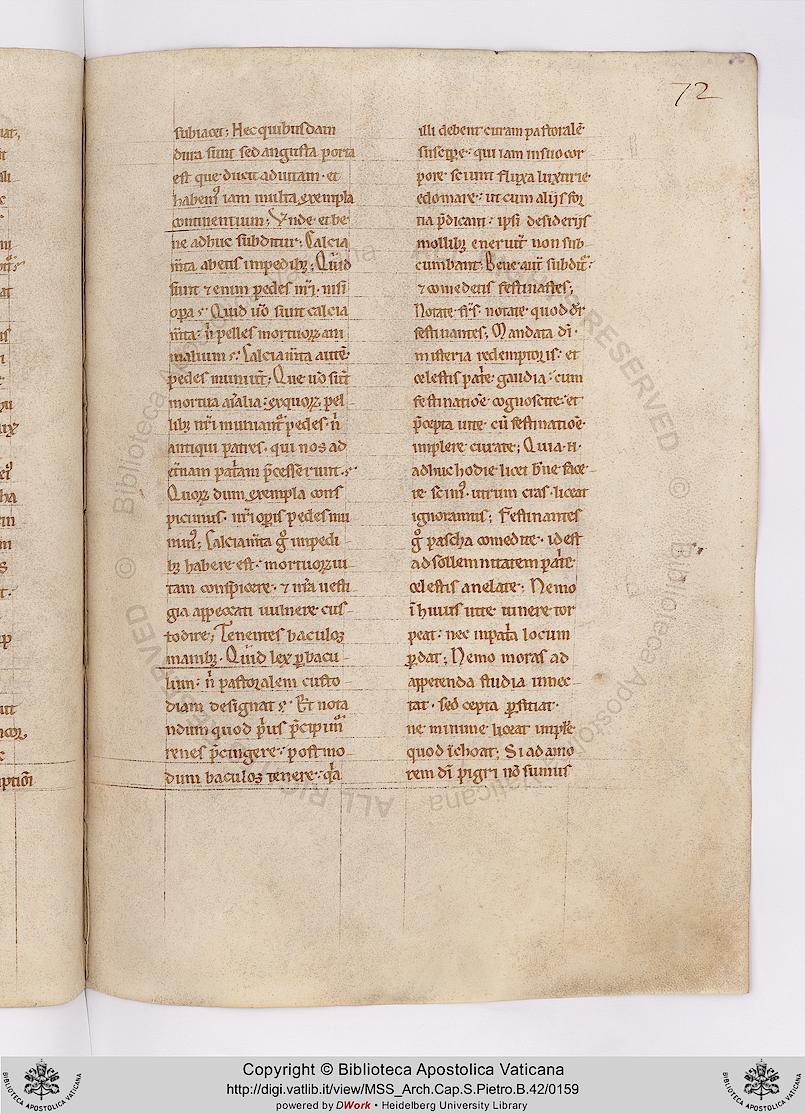 72
subiacet; Hec quibusdam
dura sunt sed angusta porta
est que ducit ad uitam· et
habemꝰ iam multa exempla
continentium; Vnde et be
ne adhuc subditur; Calcia
m̅ta abetis in pedibꝫ; Quid
sunt &enim pedes nr̅i· nisi
opa· Quid u̅o sunt calcia
m̅ta· n̅ pelles mortuoꝝ ani
malium· Calciam̅ta aute̅
pedes muniu̅t; Que u̅o su̅t
mortua a̅ı̅alia· ex quoꝝ pel
libꝫ nr̅i muniant̅ pedes· n̅
antiqui patres· qui nos ad
et̅nam pat̅am p̅cesserunt·
Quoꝝ dum exempla cons
picimus· nr̅i opis pedes mu
nimꝰ; Calciam̅ta g̊ in pedi
bꝫ habere est· mortuoꝝ ui
tam conspicere· & nr̅a uesti
gia a peccati uulnere cus
todire; Tenentes baculos
manibꝫ· Quid lex p bacu
lum· n̅ pastoralem custo
diam designat· Et nota
ndum quod p̅us p̅cipim̅
renes p̅cingere· postmo
dum baculos tenere· q̅a
illi debent curam pastorale̅
suscipe· qui iam in suo cor
pore sciunt fluxa luxurie
edomare· ut cum aliis for
tia p̅dicant· ipsi desideriis
mollibꝫ eneruit̅ non sub
cumbant· Bene aut̅ subdit̅·
& comedetis festinantes;
Notate fr̅s· notate quod dr̅
festinantes; Mandata dı̅·
misteria redemptoris· et
celestis pat̅e gaudia· cum
festinatio̅e cognoscite· et
p̅cepta uite· cu̅ festinatio̅e
implere curate; Quia·n̅·
adhuc hodie licet bn̅e face
re scimꝰ· utrum cras liceat
ignoramus; Festinantes
g̊ pascha comedite· id est
ad sollemnitatem pat̅e
celestis anelate; Nemo
ı̅ huius uite itinere tor
peat· nec in pat̅a locum
pdat; Nemo moras ad
appetenda studia innec
tat· sed cepta pficiat·
ne minime liceat imple̅
quod ı̅choat; Si ad amo
rem dı̅ pigri no̅ sumus
Copyright © Biblioteca Apostolica Vaticana
http://digi.vatlib.it/view/MSS_Arch.Cap.S.Pietro.B.42/0159
powered by DWork • Heidelberg University Library